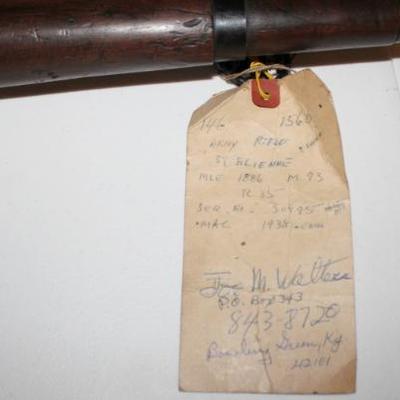 146 1560
ARMY RIFLE
ST ETIENNE
MLE 1886 M. 93
R 35
SER. No. 30995
• MAC 1938 •
M. Walters
P.O. Box 343
843-8720
Bowling Green, Ky
42101